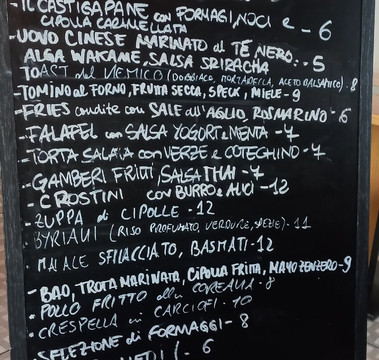 -IL CASTIGAPANE con FORMAGI, NOCI e - 6
CIPOLLA CARAMELLATA
-UOVO CINESE MARINATO al TÈ NERO.
ALGA WAKAME, SALSA SRIRACHA - 5
TOAST del NEMICO (DOBBIACO, MORTADELLA, ACETO BALSAMICO) - 8
-TOMINO al FORNO, FRUTTA SECCA, SPECK, MIELE - 9
-FRIES condite con SALE all'AGLIO, ROSMARINO - 6
-FALAFEL con SALSA YOGURT e MENTA - 7
-TORTA SALATA con VERZE e COTECHINO - 7
-GAMBERI FRITTI, SALSA THAI - 7
-CROSTINI con BURRO e ALICI - 12
-ZUPPA di CIPOLLE - 12
BYRIANI (RISO PROFUMATO, VERDURE, SPEZIE) - 11
-MAIALE SFILACCIATO, BASMATI - 12
-BAO, TROTA MARINATA, CIPOLLA FRITTA, MAYO ZENZERO - 9
-POLLO FRITTO alla COREANA - 8
-CRESPELLA ai CARCIOFI - 10
-SELEZIONE di FORMAGGI - 8
6